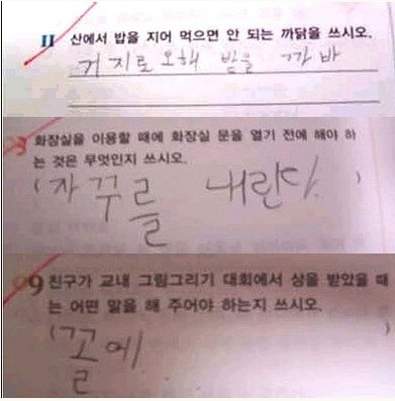 11 산에서 밥을 지어 먹으면 안 되는 까닭을 쓰시오.
거지로 오해 받을 까바
3 화장실을 이용할 때에 화장실 문을 열기 전에 해야 하
는 것은 무엇인지 쓰시오.
(자꾸를 내린다.)
9 친구가 교내 그림그리기 대회에서 상을 받았을 때
는 어떤 말을 해 주어야 하는지 쓰시오.
(꼴에 )